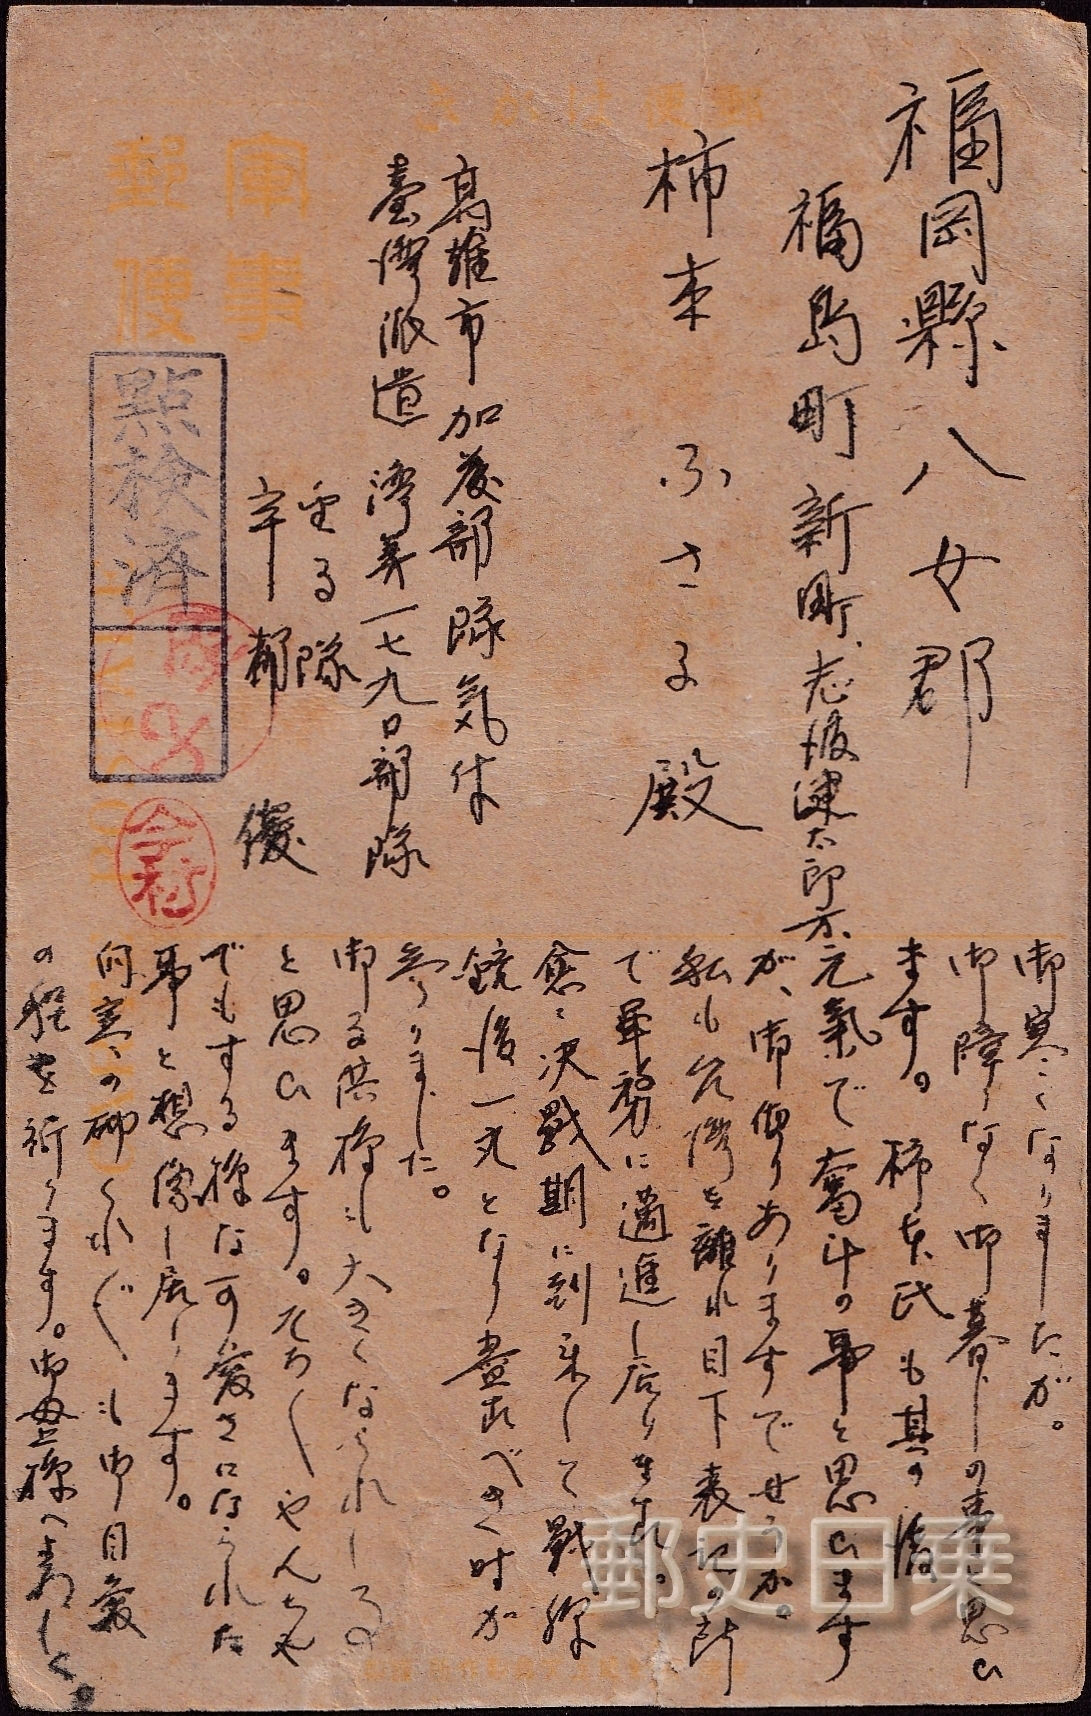 郵便はがき
軍事
郵便
福岡縣八女郡
福島町新町
柿本ふさ子殿
高雄市加藤部隊気付
臺灣派遣灣第一七九〇部隊
隊
點検済
今村
御寒くなりましたが。
御障りなく御暮しの事と思ひ
ます。柿本氏も其の後
元氣で奮斗の事と思ひます
が、御便りありますでせうか。
私も台灣を離れ目下表記の所
で軍務に邁進し居ります。
愈々決戰期に到来して戰線
銃後一丸となり盡すべき時が
参りました。
御子供様も大きくなられし事
と思ひます。
でもする様な可愛さになられた
事と想像し居ります。
何卒御
の程を祈ります。御母上様へ宜しく。
郵史日乗